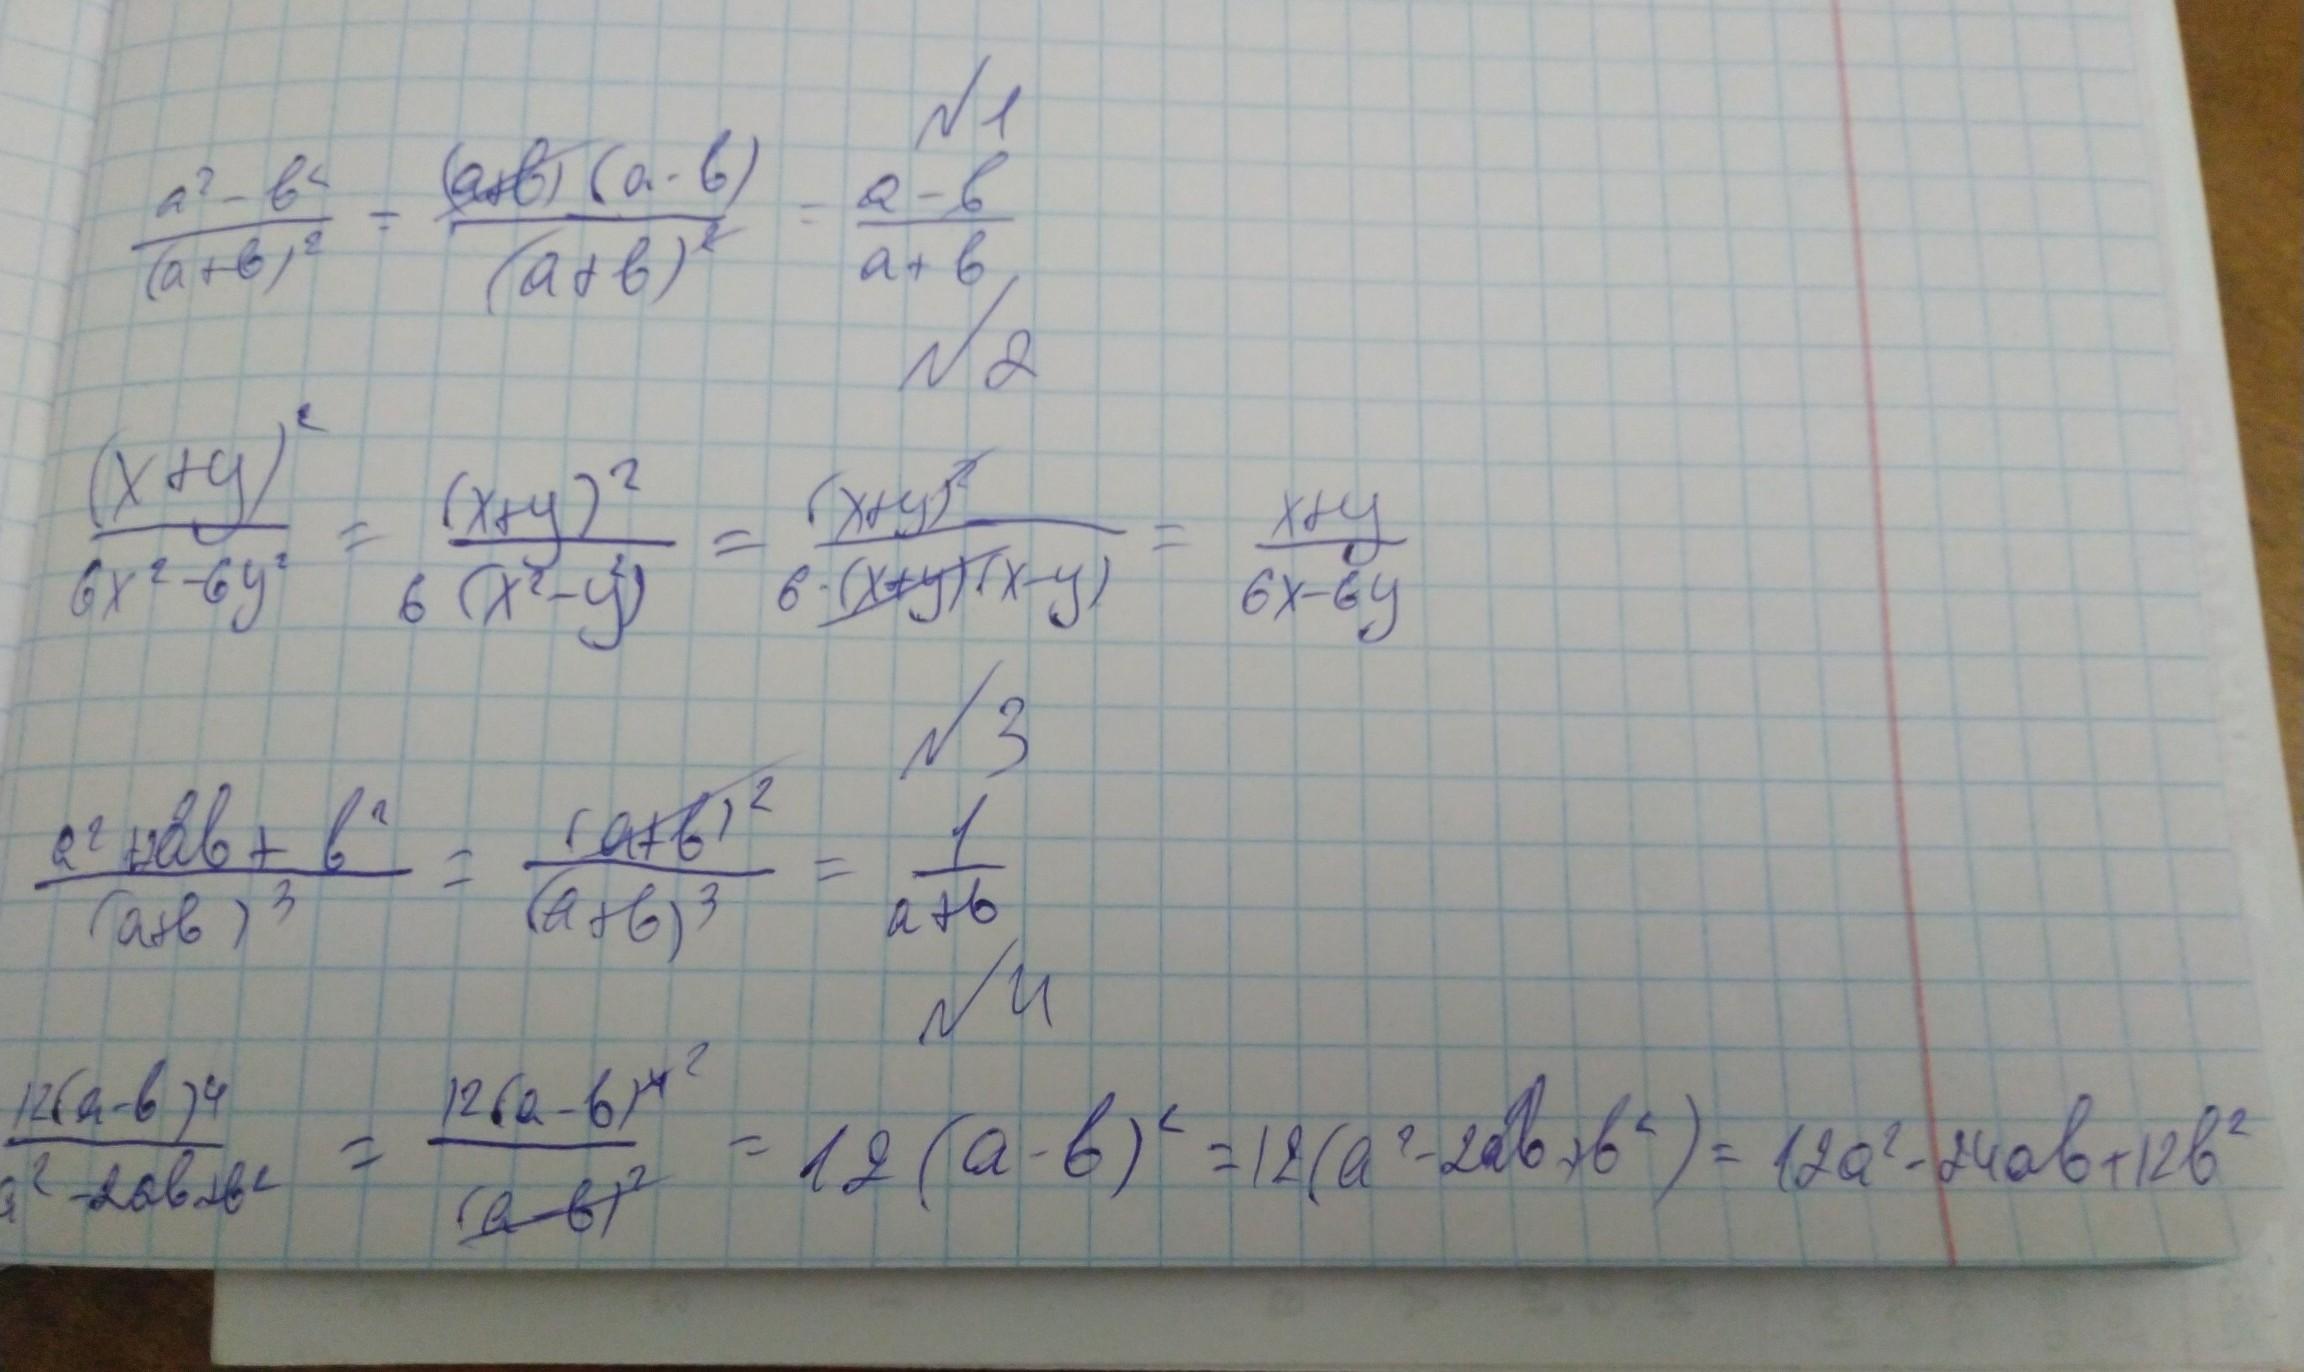 №1
a² - b² / (a+b)² = (a+b)(a-b) / (a+b)² = a-b / a+b
№2
(x+y)² / 6x²-6y² = (x+y)² / 6(x²-y²) = (x+y)² / 6·(x+y)(x-y) = x+y / 6x-6y
№3
a²+2ab+b² / (a+b)³ = (a+b)² / (a+b)³ = 1 / a+b
№4
12(a-b)⁴ / a²-2ab+b² = 12(a-b)⁴ ² / (a-b)² = 12(a-b)² = 12(a²-2ab+b²) = 12a²-24ab+12b²